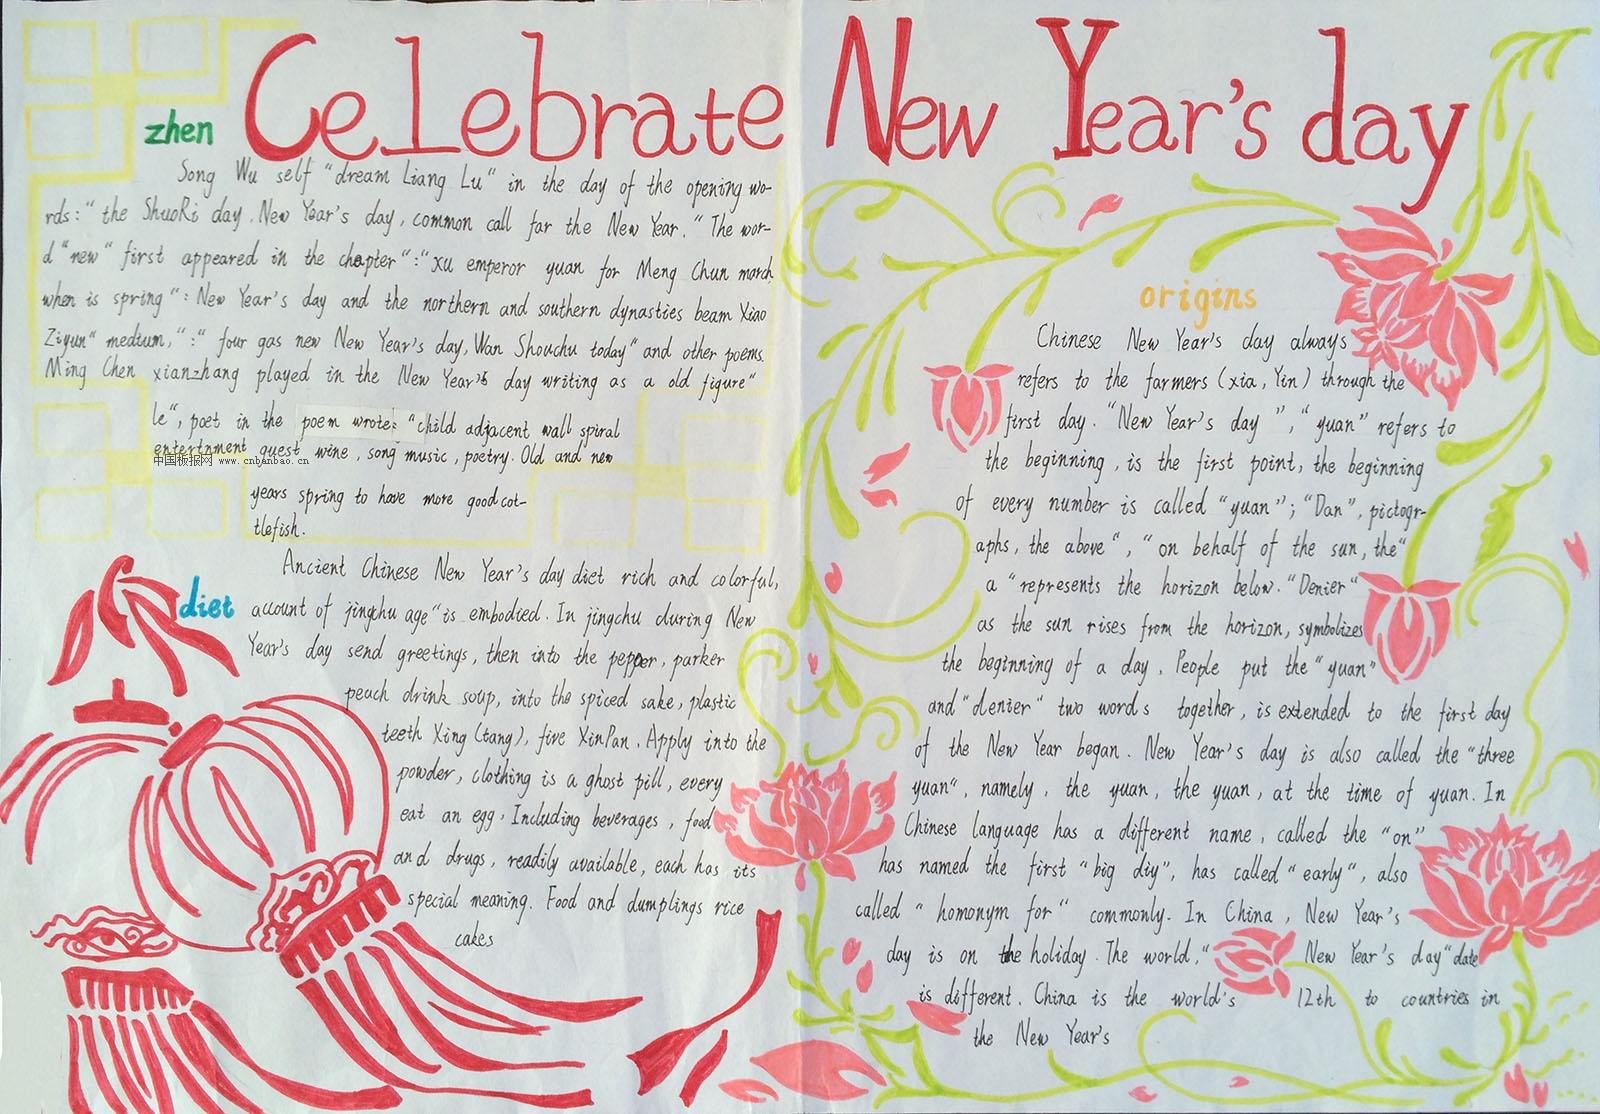 Celebrate New Year's day
zhen
Song Wu self "dream Liang Lu" in the day of the opening wo-
rds: "the ShuoRi day. New Year's day, common call far the New Year." The wor-
d "new" first appeared in the chapter":"xu emperor yuan for Meng Chun march
when is spring": New Year's day and the northern and southern dynasties beam Xiao
Ziyun" medium,":" four gas new New Year's day, Wan Shouchu today" and other poems.
Ming Chen xianzhang played in the New Year's day writing as a old figure"
le", poet in the poem wrote: "child adjacent wall spiral
entertnment guest wine, song music, poetry. Old and new
中国板报网 www.cnbanbao.cn
years spring to have more good cot-
tlefish.
diet
Ancient Chinese New Year's day diet rich and colorful,
account of jingchu age" is embodied. In jingchu during New
Year's day send greetings, then into the pepper, parker
peach drink soup, into the spiced sake, plastic
teeth Xing (tang), five XinPan. Apply into the
powder, clothing is a ghost pill, every
eat an egg. Including beverages, food
and drugs, readily available, each has its
special meaning. Food and dumplings rice
cakes
origins
Chinese New Year's day always
refers to the farmers (xia, Yin) through the
first day. "New Year's day ", "yuan" refers to
the beginning, is the first point, the beginning
of every number is called "yuan"; "Dan", pictogr-
aphs, the above", "on behalf of the sun, the"
a "represents the horizon below. "Denier"
as the sun rises from the horizon, symbolizes
the beginning of a day. People put the "yuan"
and "denier" two words together, is extended to the first day
of the New Year began. New Year's day is also called the "three
yuan", namely, the yuan, the yuan, at the time of yuan. In
Chinese language has a different name, called the "on"
has named the first "big diy", has called "early", also
called "homonym for" commonly. In China, New Year's
day is on the holiday. The world," New Year's day" date
is different. China is the world's 12th to countries in
the New Year's